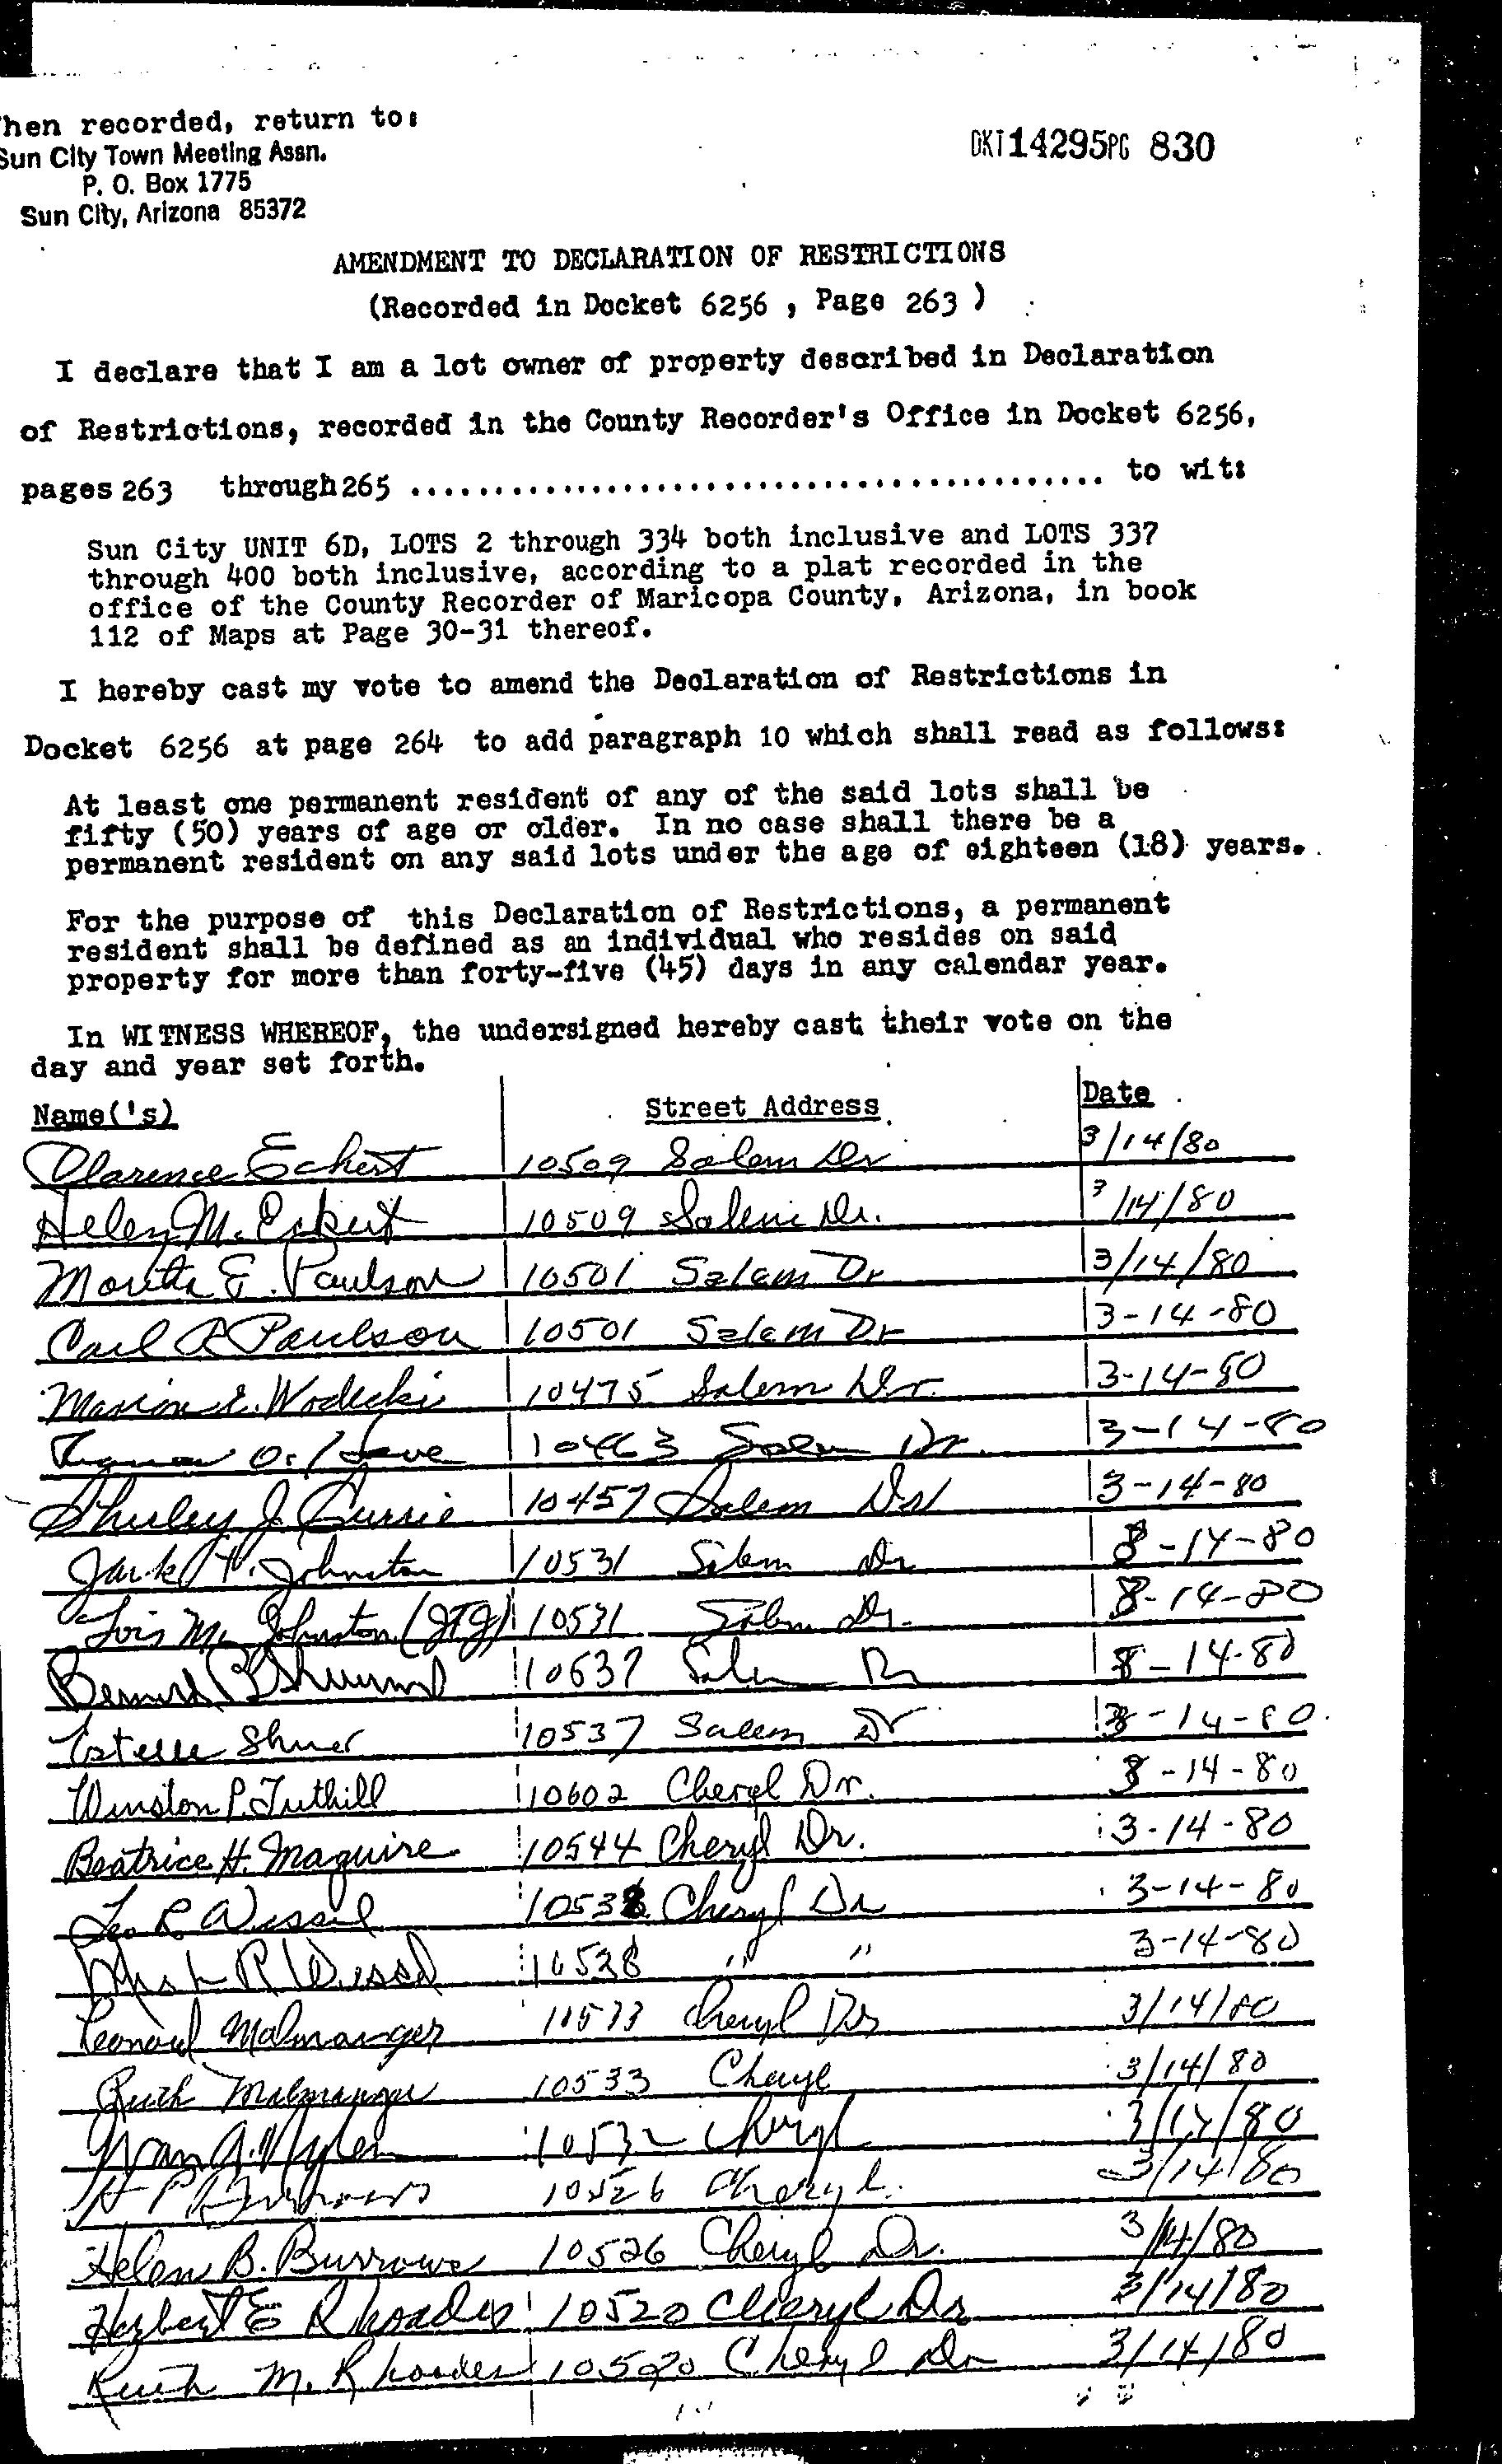 hen recorded, return to:
Sun City Town Meeting Assn.
P. O. Box 1775
Sun City, Arizona 85372
DKT 14295PG 830
AMENDMENT TO DECLARATION OF RESTRICTIONS
(Recorded in Docket 6256 , Page 263 )
I declare that I am a lot owner of property described in Declaration
of Restrictions, recorded in the County Recorder's Office in Docket 6256,
pages 263 through 265 ........................................... to wit:
Sun City UNIT 6D, LOTS 2 through 334 both inclusive and LOTS 337
through 400 both inclusive, according to a plat recorded in the
office of the County Recorder of Maricopa County, Arizona, in book
112 of Maps at Page 30-31 thereof.
I hereby cast my vote to amend the Declaration of Restrictions in
Docket 6256 at page 264 to add paragraph 10 which shall read as follows:
At least one permanent resident of any of the said lots shall be
fifty (50) years of age or older. In no case shall there be a
permanent resident on any said lots under the age of eighteen (18) years.
For the purpose of this Declaration of Restrictions, a permanent
resident shall be defined as an individual who resides on said
property for more than forty-five (45) days in any calendar year.
In WITNESS WHEREOF, the undersigned hereby cast their vote on the
day and year set forth.
Name('s) Street Address Date
Clarence Eckert 10509 Salem Dr 3/14/80
Helen M. Eckert 10509 Salem Dr. 3/14/80
E. Paulson 10501 Salem Dr 3/14/80
Carl R Paulson 10501 Salem Dr 3-14-80
Marion E. Wodecki 10475 Salem Dr. 3-14-80
O. 10463 Salem Dr. 3-14-80
Shirley J. Currie 10457 Salem Dr 3-14-80
Jack T. Johnston 10531 Salem Dr 3-14-80
Lois M. Johnston (JTJ) 10531 Salem Dr. 3-14-80
Bernard 10537 Salem Dr 3-14-80
Estelle 10537 Salem Dr 3-14-80
Winston P. Tuthill 10602 Cheryl Dr. 3-14-80
Beatrice H. Maguire 10544 Cheryl Dr. 3-14-80
Leo R Wessel 10538 Cheryl Dr 3-14-80
R Wessel 10538 " " 3-14-80
Leonard Malmanger 10533 Cheryl Dr 3/14/80
Ruth Malmanger 10533 Cheryl 3/14/80
10532 Cheryl 3/14/80
10526 Cheryl. 3/14/80
Helen B. Burrows 10526 Cheryl Dr. 3/14/80
Herbert E Rhoades 10520 Cheryl Dr 3/14/80
Ruth M. Rhoades 10520 Cheryl Dr 3/14/80